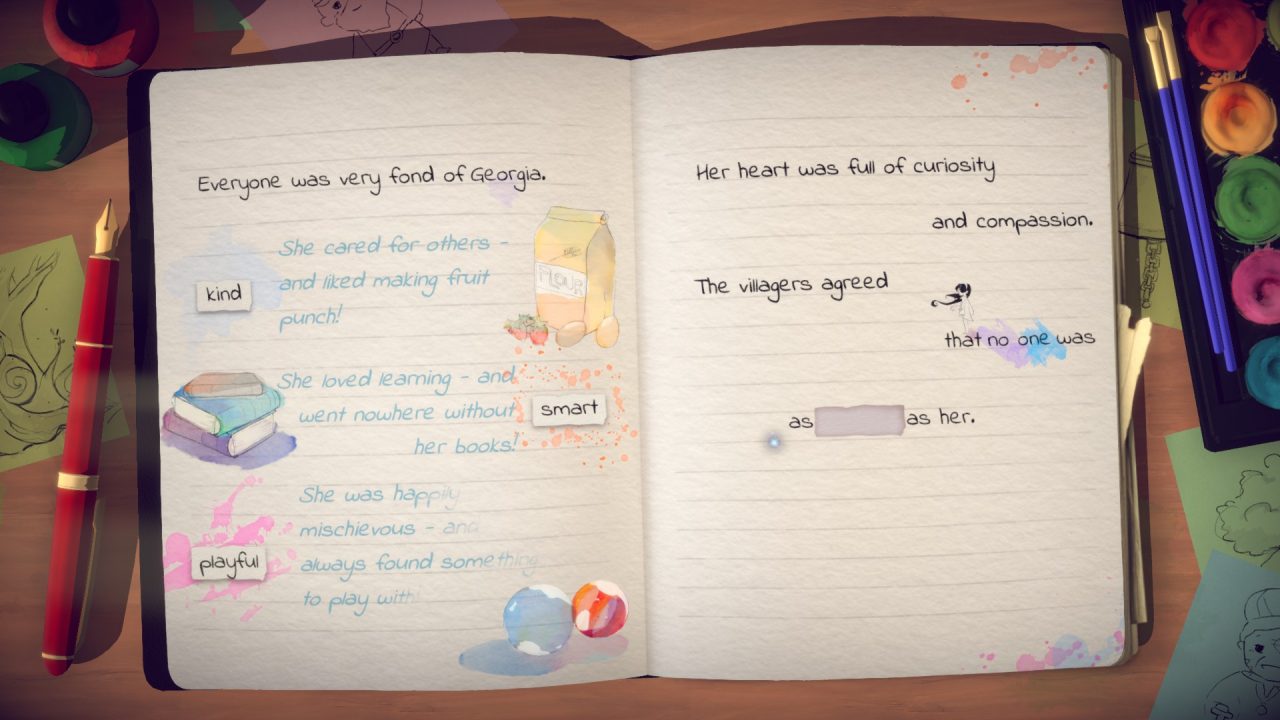 Everyone was very fond of Georgia.
She cared for others -
and liked making fruit
punch!
kind
FLOUR
She loved learning - and
went nowhere without
her books!
smart
She was happily
mischievous - and
always found something
to play with!
playful
Her heart was full of curiosity
and compassion.
The villagers agreed
that no one was
as
as her.